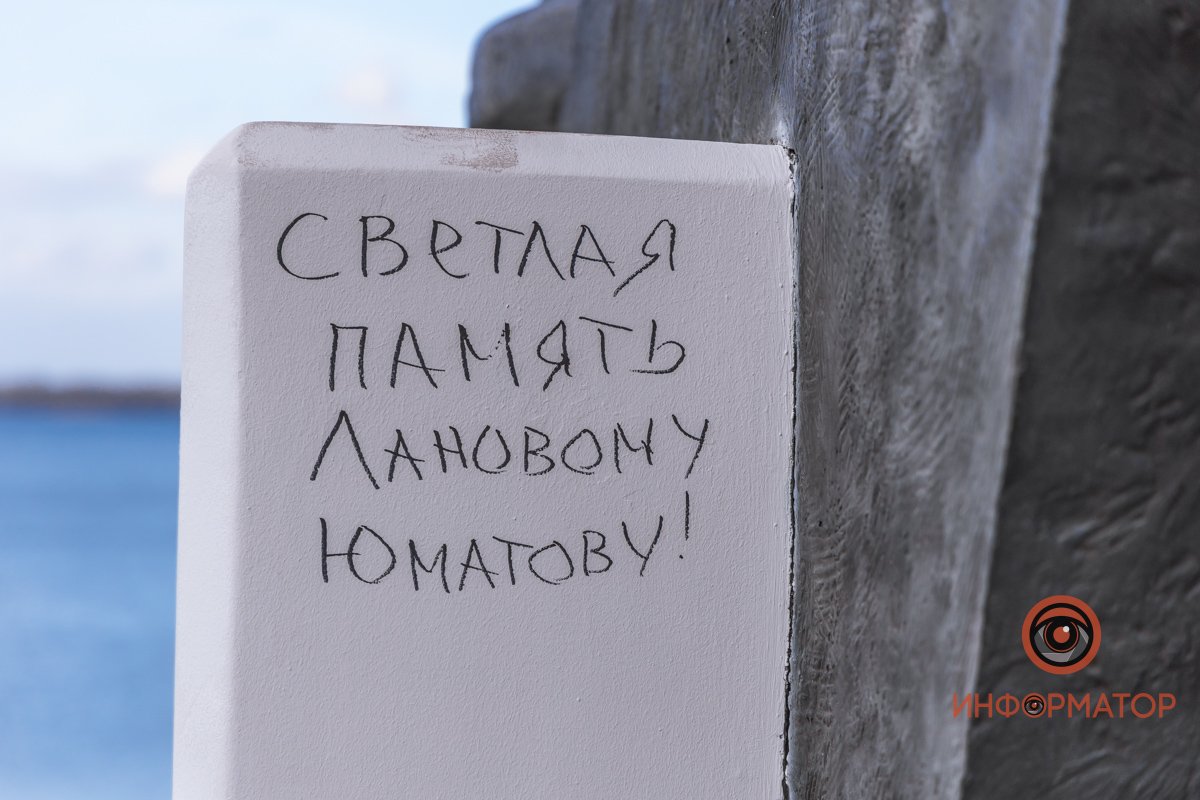 СВеТЛАЯ
ПАМЯТЬ
ЛАНОВОМУ
ЮМАТОВУ!
ИНФОРМАТОР